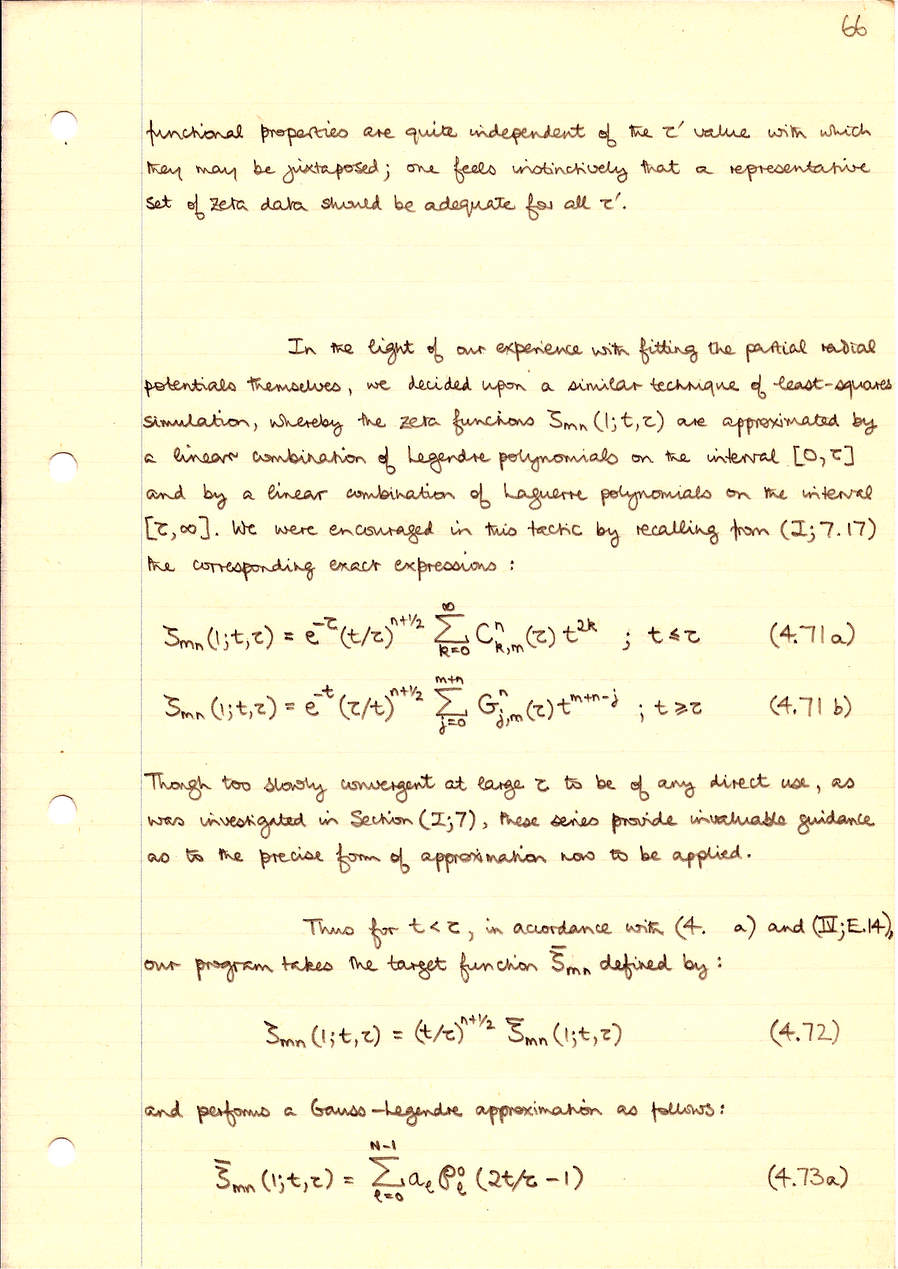 66
functional properties are quite independent of the τ′ value with which
they may be juxtaposed; one feels instinctively that a representative
set of zeta data should be adequate for all τ′.
In the light of our experience with fitting the partial radial
potentials themselves, we decided upon a similar technique of least-squares
simulation, whereby the zeta functions ζmn (1;t,τ) are approximated by
a linear combination of Legendre polynomials on the interval [0,τ]
and by a linear combination of Laguerre polynomials on the interval
[τ,∞]. We were encouraged in this tactic by recalling from (I; 7.17)
the corresponding exact expressions :
ζmn (1;t,τ) = e^-τ (t/τ)^n+1/2 ∑_k=0^∞ C^n_k,m (τ) t^2k ; t ≤ τ (4.71a)
ζmn (1;t,τ) = e^-t (τ/t)^n+1/2 ∑_j=0^m+n G^n_j,m (τ) t^m+n-j ; t ≥ τ (4.71 b)
Though too slowly convergent at large τ to be of any direct use, as
was investigated in Section (I;7), these series provide invaluable guidance
as to the precise form of approximation now to be applied.
Thus for t < τ, in accordance with (4. a) and (IV; E.14),
our program takes the target function ζ̄mn defined by :
ζmn (1;t,τ) = (t/τ)^n+1/2 ζ̄mn (1;t,τ) (4.72)
and performs a Gauss-Legendre approximation as follows:
ζ̄mn (1;t,τ) = ∑_ℓ=0^N-1 a_ℓ P^0_ℓ (2t/τ - 1) (4.73a)